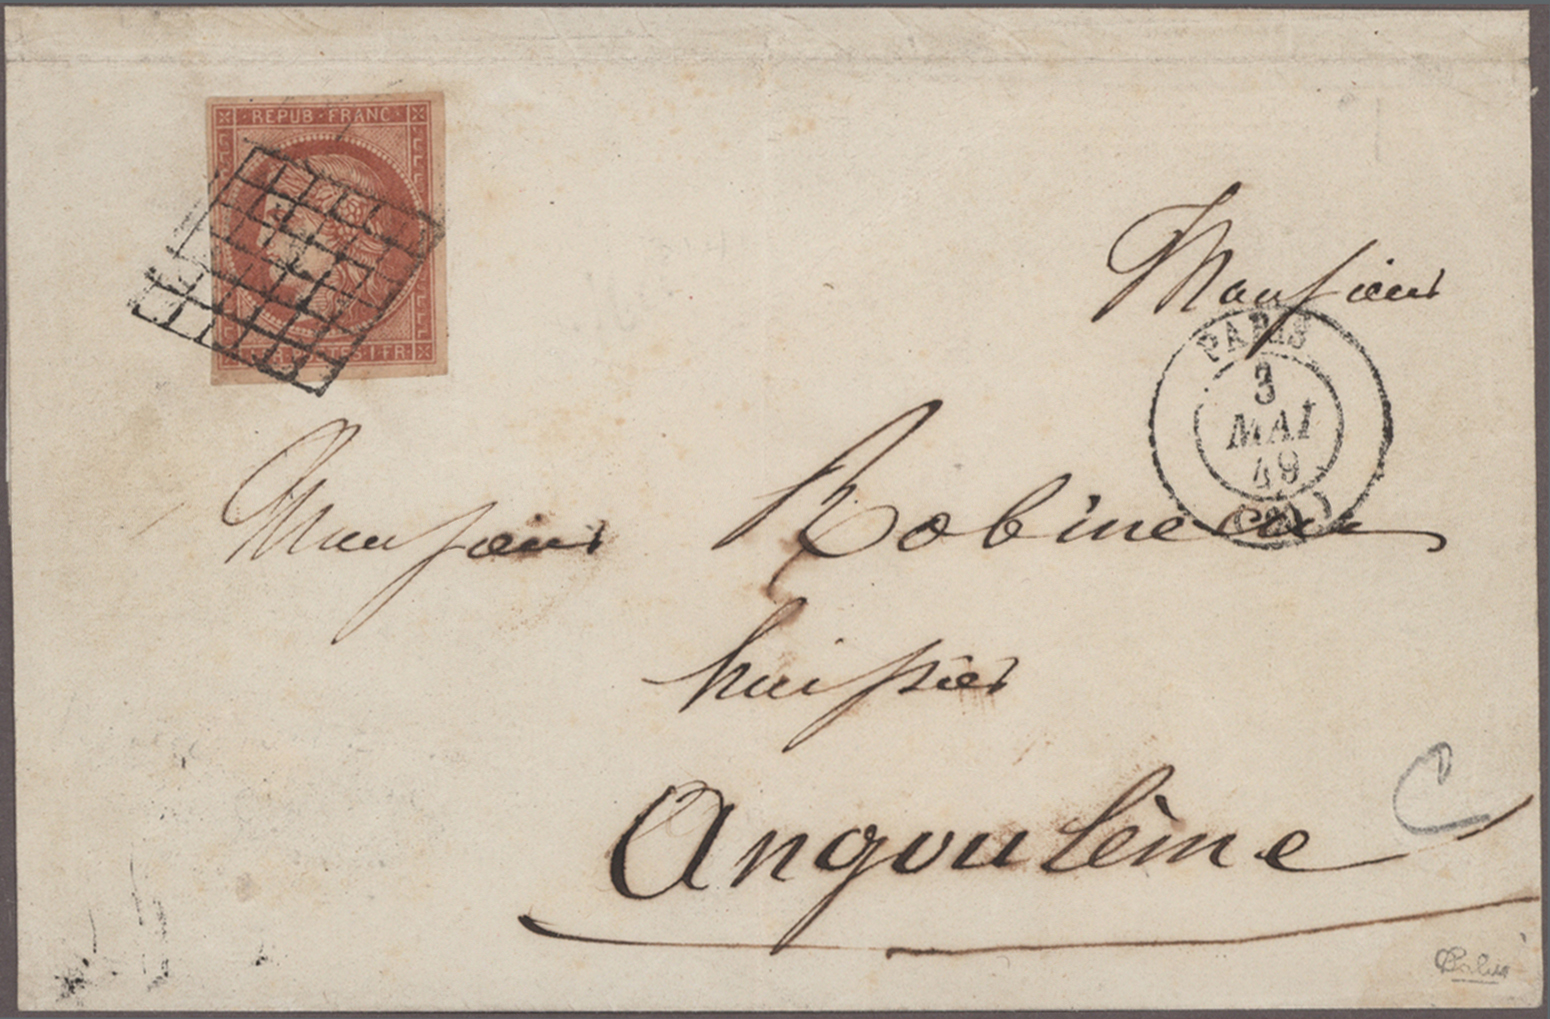 REPUB·FRANC
1 FR.
Monsieur
PARIS
3
MAI
49
Monsieur Robineau
huissier
Angoulême
C